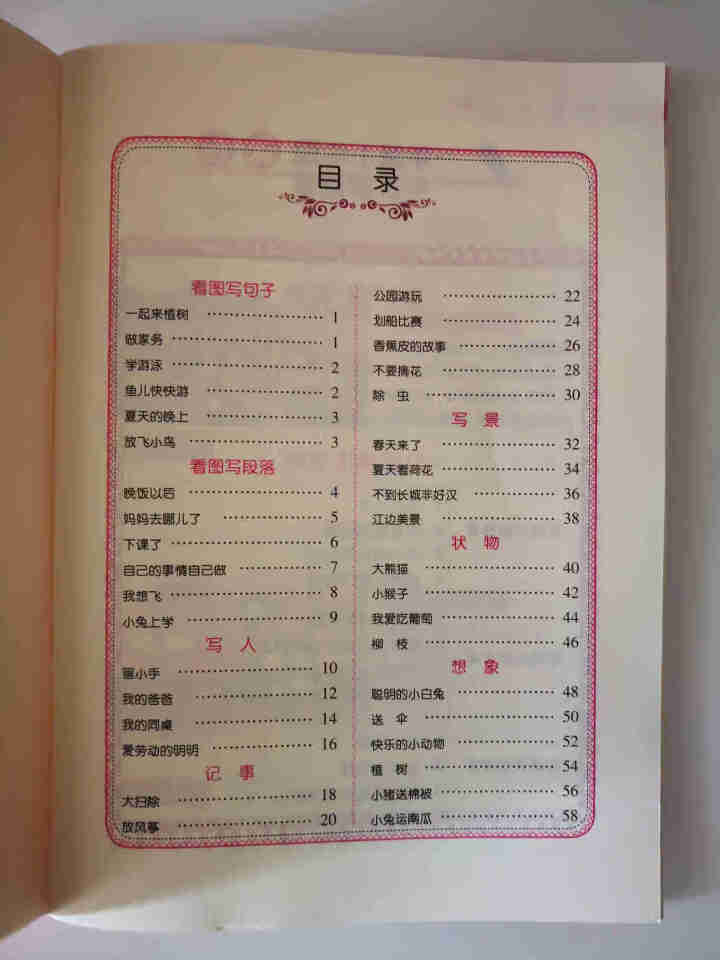 目 录
看图写句子
一起来植树 ………………… 1
做家务 ………………… 1
学游泳 ………………… 2
鱼儿快快游 ………………… 2
夏天的晚上 ………………… 3
放飞小鸟 ………………… 3
看图写段落
晚饭以后 ………………… 4
妈妈去哪儿了 ………………… 5
下课了 ………………… 6
自己的事情自己做 ………………… 7
我想飞 ………………… 8
小兔上学 ………………… 9
写 人
画小手 ………………… 10
我的爸爸 ………………… 12
我的同桌 ………………… 14
爱劳动的明明 ………………… 16
记 事
大扫除 ………………… 18
放风筝 ………………… 20
公园游玩 ………………… 22
划船比赛 ………………… 24
香蕉皮的故事 ………………… 26
不要摘花 ………………… 28
除 虫 ………………… 30
写 景
春天来了 ………………… 32
夏天看荷花 ………………… 34
不到长城非好汉 ………………… 36
江边美景 ………………… 38
状 物
大熊猫 ………………… 40
小猴子 ………………… 42
我爱吃葡萄 ………………… 44
柳 枝 ………………… 46
想 象
聪明的小白兔 ………………… 48
送 伞 ………………… 50
快乐的小动物 ………………… 52
植 树 ………………… 54
小猪送棉被 ………………… 56
小兔运南瓜 ………………… 58